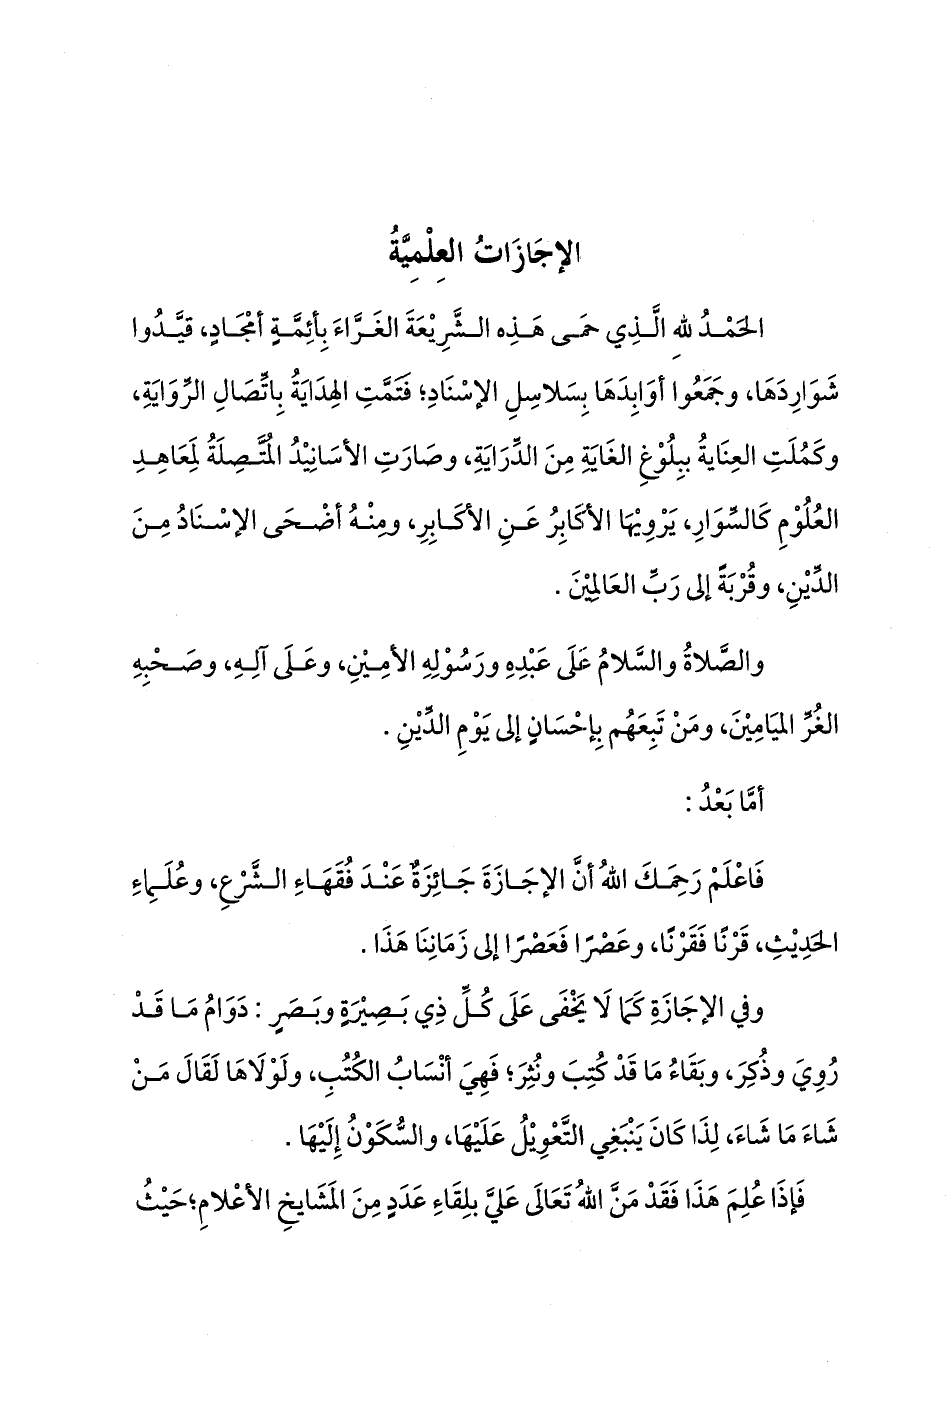 الإجَازَاتُ العِلْمِيَّةُ
الحَمْدُ للهِ الَّذِي حَمَى هَذِه الشَّرِيْعَةَ الغَرَّاءَ بِأئِمَّةٍ أمْجَادٍ، قَيَّدُوا
شَوَارِدَهَا، وجَمَعُوا أوَابِدَهَا بِسَلاسِلِ الإسْنَادِ؛ فَتَمَّتِ الهِدَايَةُ بِاتِّصَالِ الرِّوَايَةِ،
وكَمُلَتِ العِنَايةُ بِبِلُوْغِ الغَايَةِ مِنَ الدِّرَايَةِ، وصَارَتِ الأسَانِيْدُ المُتَّصِلَةُ لمَعَاهِدِ
العُلُوْمِ كَالسِّوَارِ، يَرْوِيْهَا الأكَابِرُ عَنِ الأكَابِرِ، ومِنْهُ أضْحَى الإسْنَادُ مِنَ
الدِّيْنِ، وقُرْبَةً إلى رَبِّ العَالمِيْنَ .
والصَّلاةُ والسَّلامُ عَلَى عَبْدِهِ ورَسُوْلِهِ الأمِيْنِ، وعَلَى آلِهِ، وصَحْبِهِ
الغُرِّ الميَامِيْنَ، ومَنْ تَبِعَهُم بِإحْسَانٍ إلى يَوْمِ الدِّيْنِ .
أمَّا بَعْدُ :
فَاعْلَمْ رَحِمَكَ اللهُ أنَّ الإجَازَةَ جَائِزَةٌ عَنْدَ فُقَهَاءِ الشَّرْعِ، وعُلَمَاءِ
الحَدِيْثِ، قَرْنًا فَقَرْنًا، وعَصْرًا فَعَصْرًا إلى زَمَانِنَا هَذَا .
وفي الإجَازَةِ كَمَا لَا يَخْفَى عَلَى كُلِّ ذِي بَصِيْرَةٍ وبَصَرٍ : دَوَامُ مَا قَدْ
رُوِيَ وذُكِرَ، وبَقَاءُ مَا قَدْ كُتِبَ ونُثِرَ؛ فَهِيَ أنْسَابُ الكُتُبِ، ولَوْلَاهَا لَقَالَ مَنْ
شَاءَ مَا شَاءَ، لِذَا كَانَ يَنْبَغِي التَّعْوِيْلُ عَلَيْهَا، والسُّكُوْنُ إلَيْهَا .
فَإذَا عُلِمَ هَذَا فَقَدْ مَنَّ اللهُ تَعَالَى عَليَّ بلِقَاءِ عَدَدٍ مِنَ المَشَايخِ الأعْلامِ؛حَيْثُ